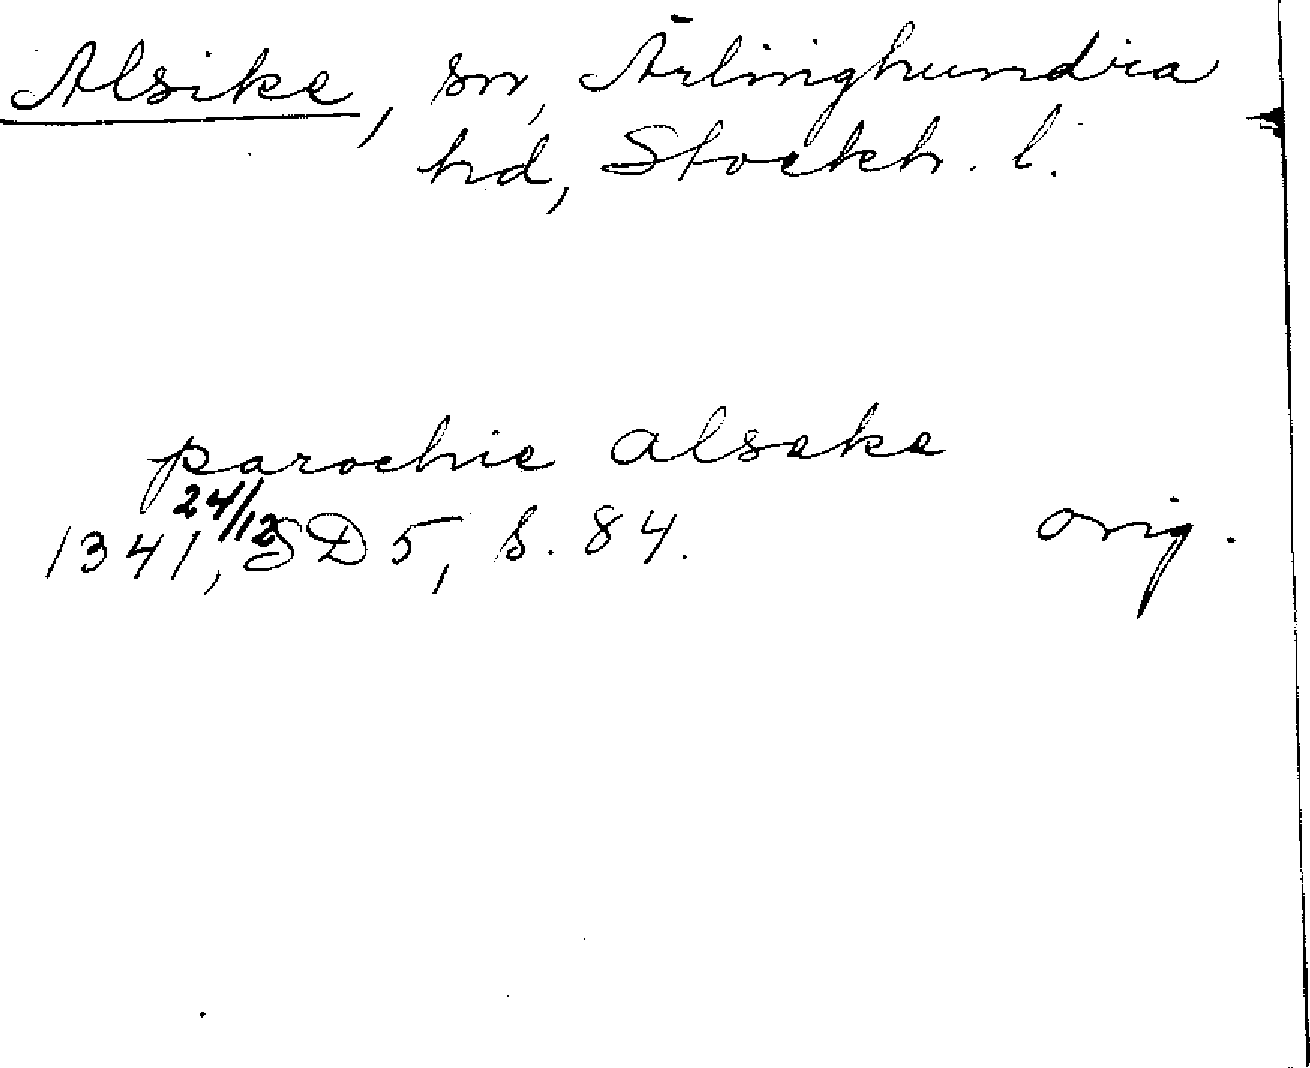 Alsike, sn, Ärlinghundra
hd, Stockh. l.
parochie alseke
1341, 24/12 SD 5, s. 84. orig.